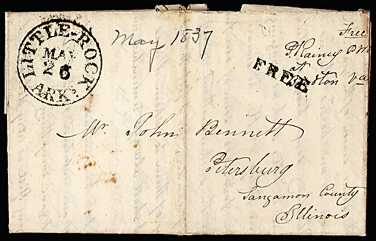 LITTLE-ROCK
MAY
26
ARKS
May 1837
FREE
Free
P Rainey P.M
at
Mr John Bennett
Petersburg
Sangamon County
Illinois